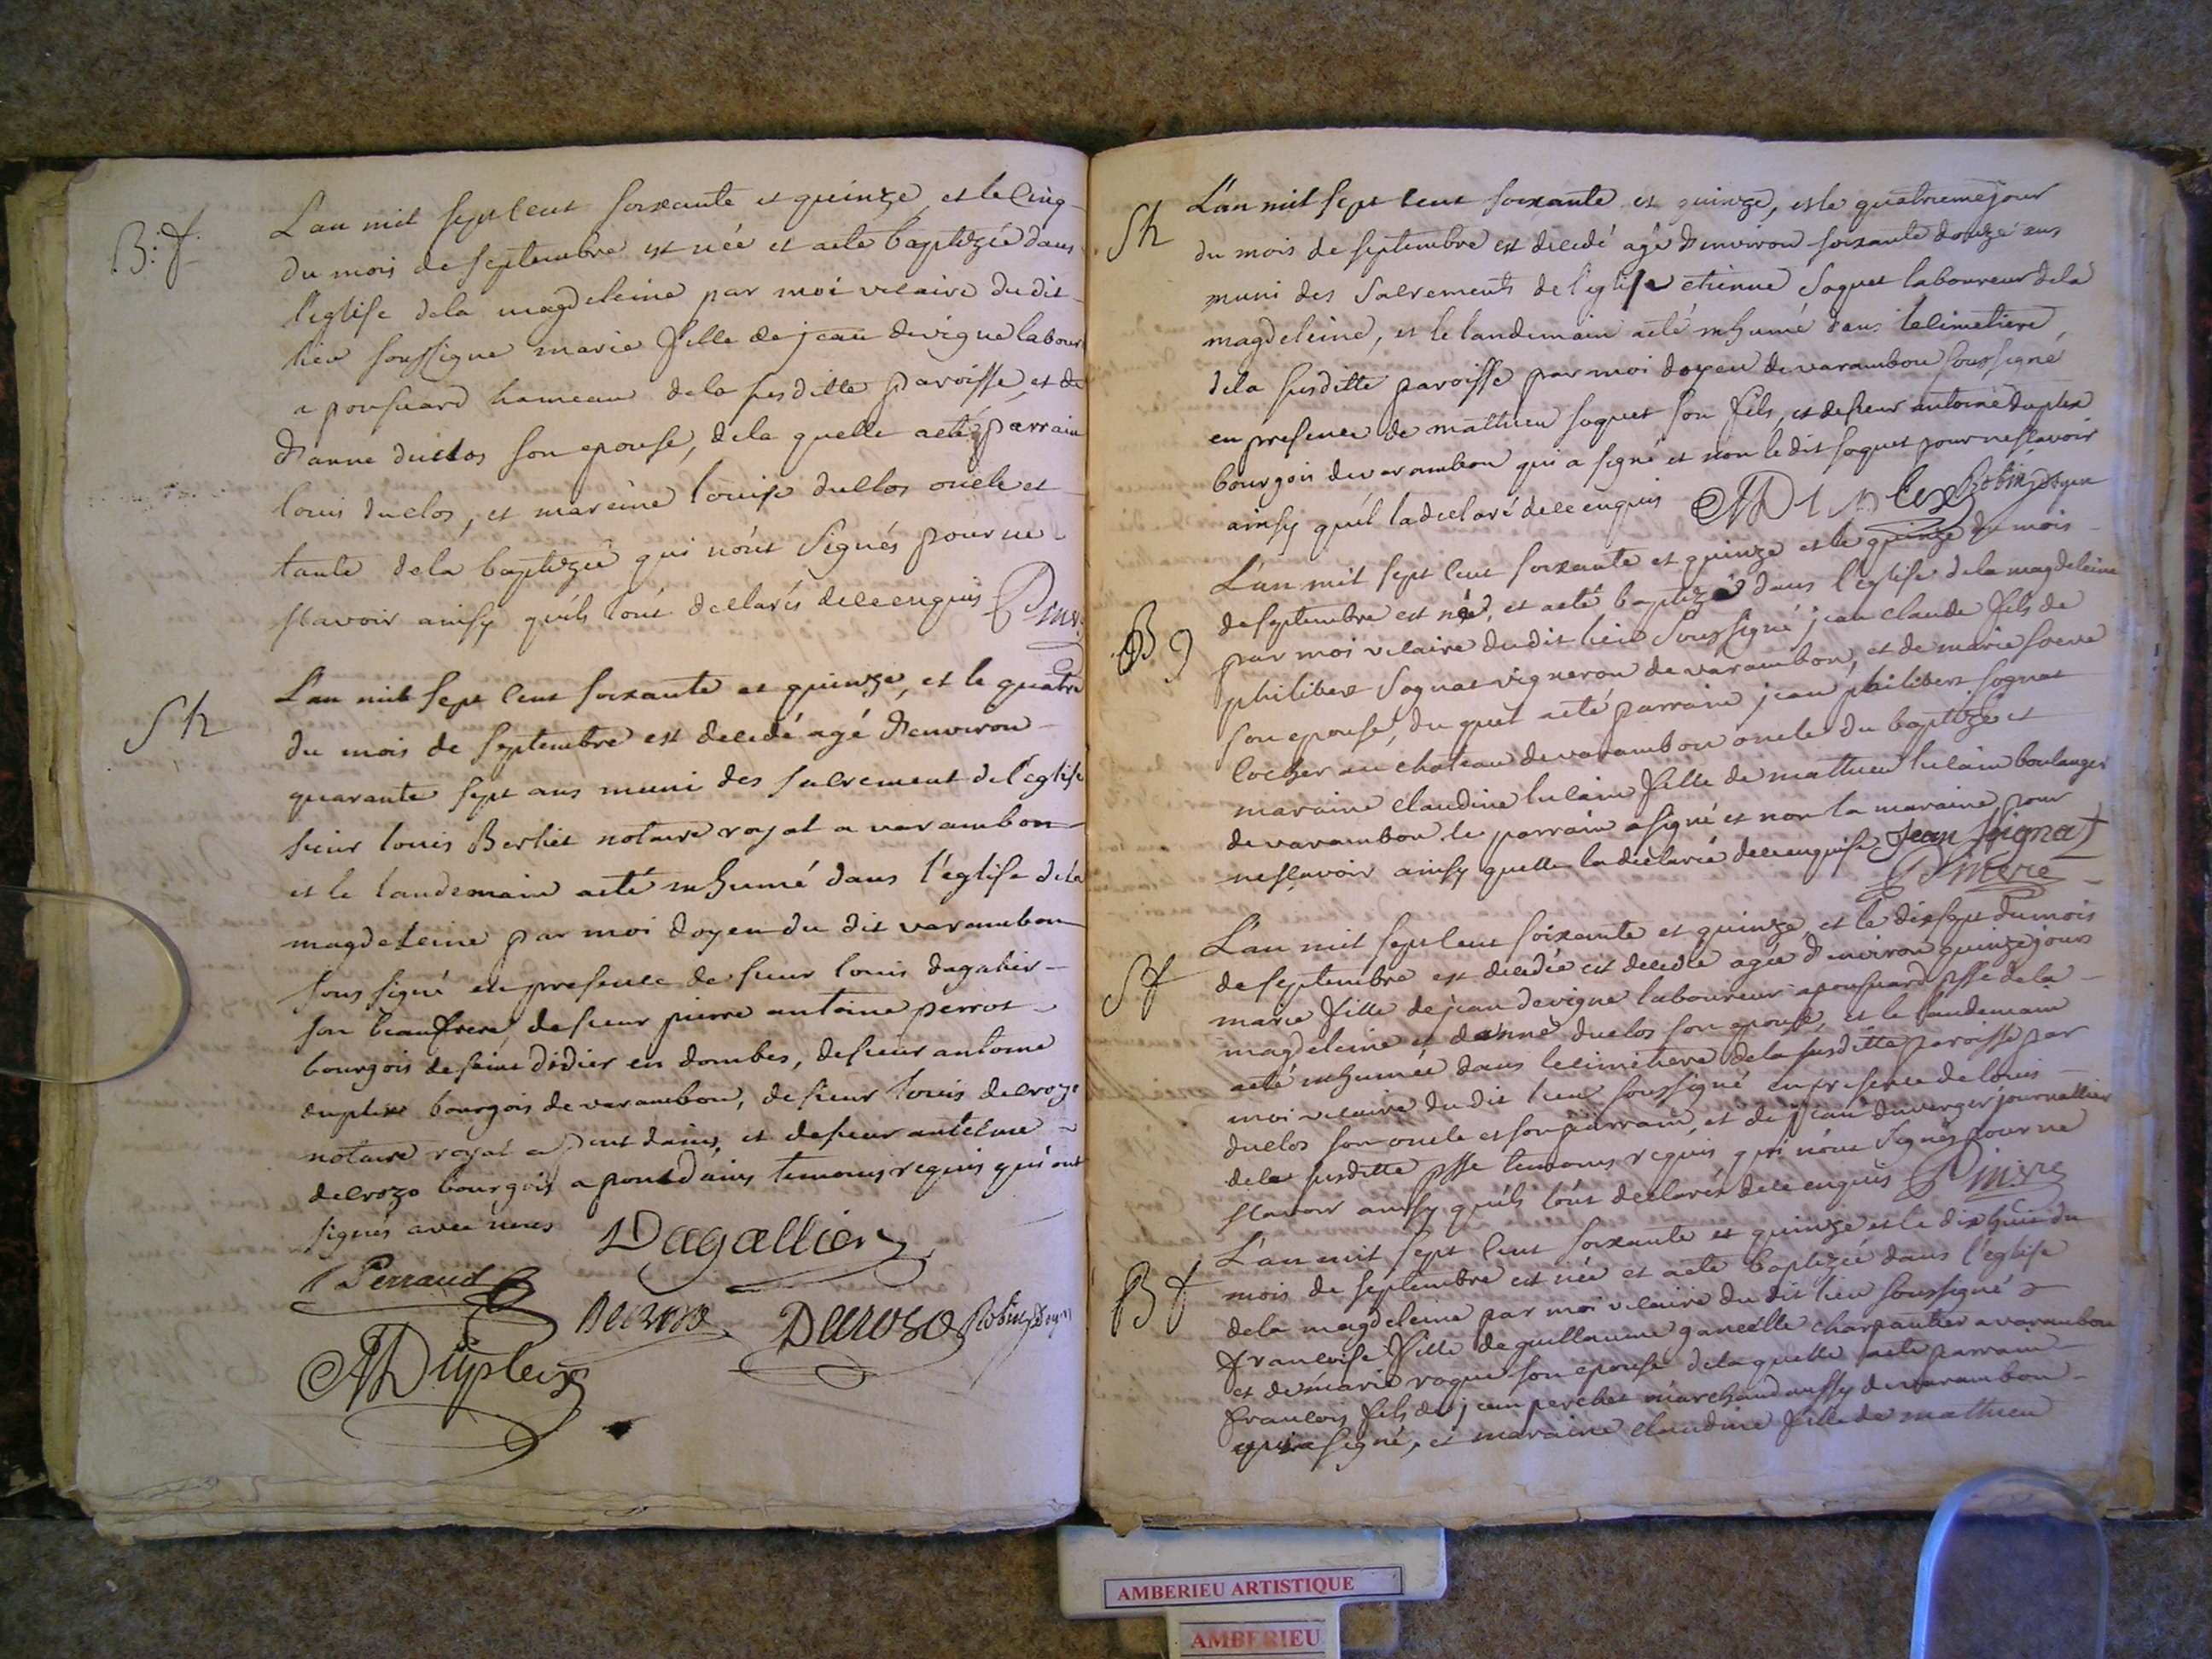 B: f.
L'an mil sept cent soixante et quinze et le cinq
du mois de septembre est née et aeté baptizée dans
l'eglise dela magdeleine par moi vicaire du dit
lieu soussigné marie fille de jean devigne labour
a ponsuard hameau dela susditte paroisse, et de
d'anne duclos son epouse, dela quelle aeté parrain
louis duclos, et mareine louise duclos oncle et
tante dela baptizée qui n'ont signés pour ne
scavoir ainsy quils l'ont declarés de ce enquis
Sh
L'an mil sept cent soixante et quinze, et le quatre
du mois de septembre est decedé agé d'environ
quarante sept ans muni des sacrement de l'eglise
sieur louis Berliet notaire royal a varambon
et le landemain aeté inhumé dans l'église dela
magdeleine par moi doyen du dit varambon
soussigné en presence de sieur louis dagalier
son beaufrere, de sieur pierre antoine perrot
bourgois de saint didier en dombes, de sieur antoine
duplex bourgois de varambon, de sieur louis decrozo
notaire royal a pont dains, et de sieur antelme
decrozo bourgois a pont dains temoins requis qui ont
signés avec nous
Dagallier
Perraud
Decrozo
Decroso
Robin Doyen
AD Uplex
Sh
L'an mil sept cent soixante et quinze, et le quatriemejour
du mois de septembre est decedé agé d'environ soixante douze ans
muni des sacrements de l'eglise etienne soquet laboureur dela
magdeleine, et le landemain aeté inhumé dans le cimetiere
dela susditte paroisse par moi doyen de varambon soussigné
en presence de mathieu soquet son fils, et de sieur antoine duplex
bourgois de varambon qui a signé et non le dit soquet pour ne scavoir
ainsy quil la declaré de ce enquis AD Uplex Robin doyen
B g
L'an mil sept cent soixante et quinze et le quinze du mois
de septembre est né, et aeté baptizé dans l'eglise dela magdeleine
par moi vicaire du dit lieu soussigné jean claude fils de
philibert sognat vigneron de varambon, et de marie
son epouse, du quel aeté parrain jean philibert sognat
cocher au chateau de varambon oncle du baptizé et
maraine claudine lulain fille de mathieu lulain boulanger
de varambon le parrain a signé et non la maraine pour
ne scavoir ainsy quelle la declaré de ce enquise Jean Soignat
S f
L'an mil sept cent soixante et quinze, et le dix sept du mois
de septembre est decedée est decedée agée d'environ quinze jours
marie fille de jean devigne laboureur a ponsuard psse dela
magdeleine et danne duclos son epouse, et le landemain
aeté inhumée dans le cimetiere dela susditte paroisse par
moi vicaire du dit lieu soussigné en presence de louis
duclos son oncle et son parrain, et de jean duverger journallier
dela susditte psse temoins requis qui n'ont signés pour ne
scavoir ainsy quils l'ont declarés de ce enquis
B f
L'an mil sept cent soixante et quinze et le dix huit du
mois de septembre est née et aeté baptizée dans l'eglise
dela magdeleine par moi vicaire du dit lieu soussigné
francoise fille de guillaume charpantier a varambon
et de marie son epouse dela quelle aeté parrain
francois fils de jean perchet marchand aussy de varambon
qui a signé, et maraine claudine fille de mathieu
AMBERIEU ARTISTIQUE
AMBERIEU